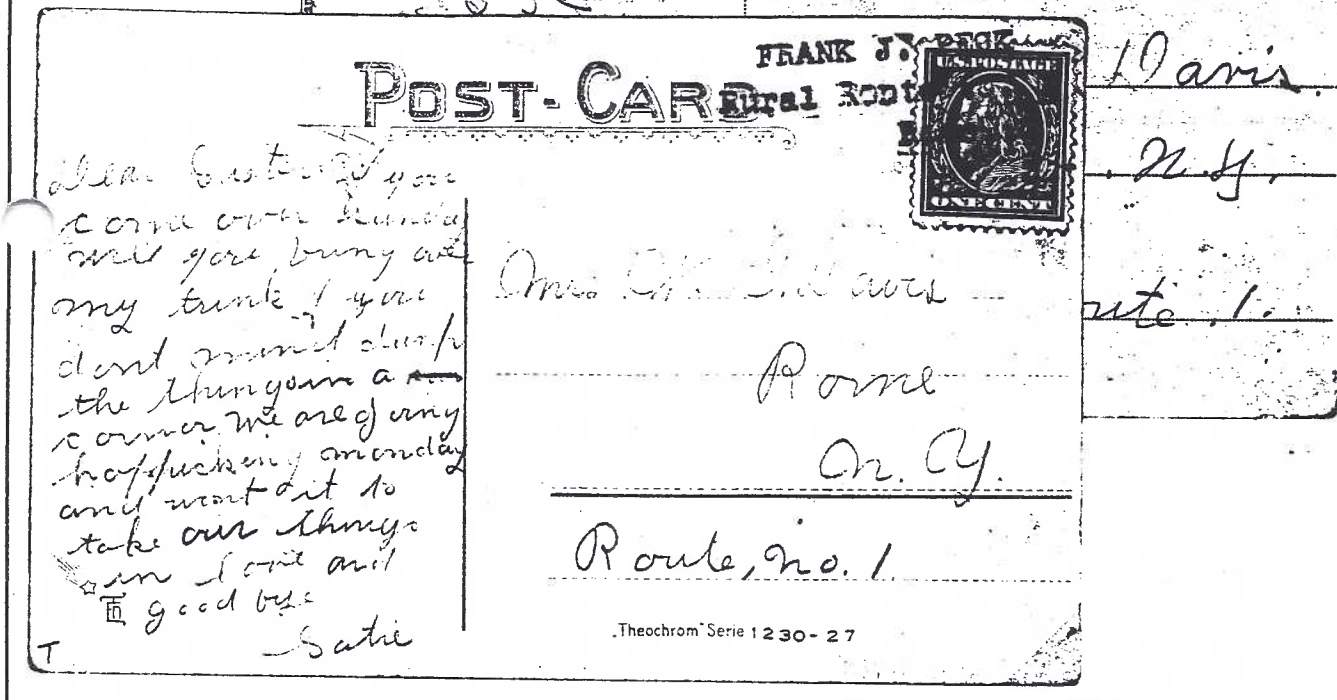 POST-CARD
FRANK J. PECK
Rural Rout
U.S. POSTAGE
ONE CENT
Davis.
N.Y.
ute 1.
Dear Sister If you
come over Sunday
will you bring over
my trunk if you
dont mind dump
the things in a
corner We are going
hop picking monday
and want it to
take our things
in Love and
good bye
Satie
Mrs. Davis
Rome
N. Y.
Route, No. 1
„Theochrom" Serie 1230-27
T